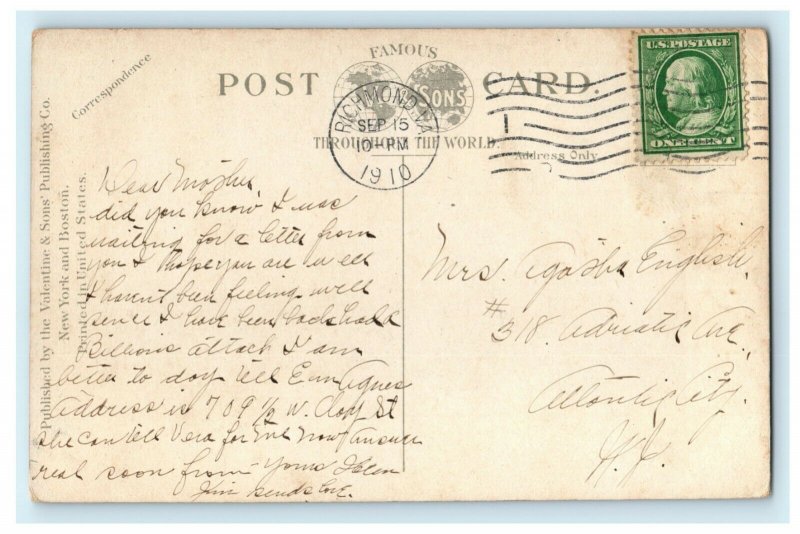 Correspondence
FAMOUS
POST CARD.
SONS
THROUGHOUT THE WORLD.
Address Only
RICHMOND, VA.
SEP 15
10-PM
1910
U.S. POSTAGE
ONE CENT
Published by the Valentine & Sons' Publishing Co.
New York and Boston.
Printed in United States.
Dear Mother
did you know I was
waiting for a letter from
you I hope you are well
I haven't been feeling well
sence I have been back had a
Billions attack I am
better to day tell Em Agnes
Address is 709 1/2 W. Clay St
she can tell Vera for me Now Answer
real soon from yours Helen
Jim sends love.
Mrs. Agatha English.
# 318. Adriatic Ave.
Atlantic City.
N.J.